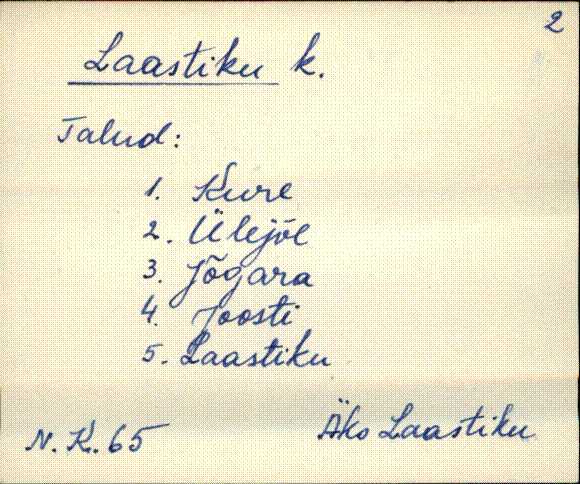 2
Laastiku k.
Talud:
1. Kure
2. Ülejõe
3. Jõgara
4. Joosti
5. Laastiku
N. K. 65
Äko Laastiku